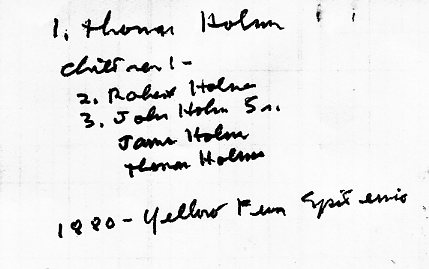 1. Thomas Holm
Children:-
2. Robert Holme
3. John Holm Sr.
James Holm
Thomas Holmes
1880 - Yellow Fever Epidemic